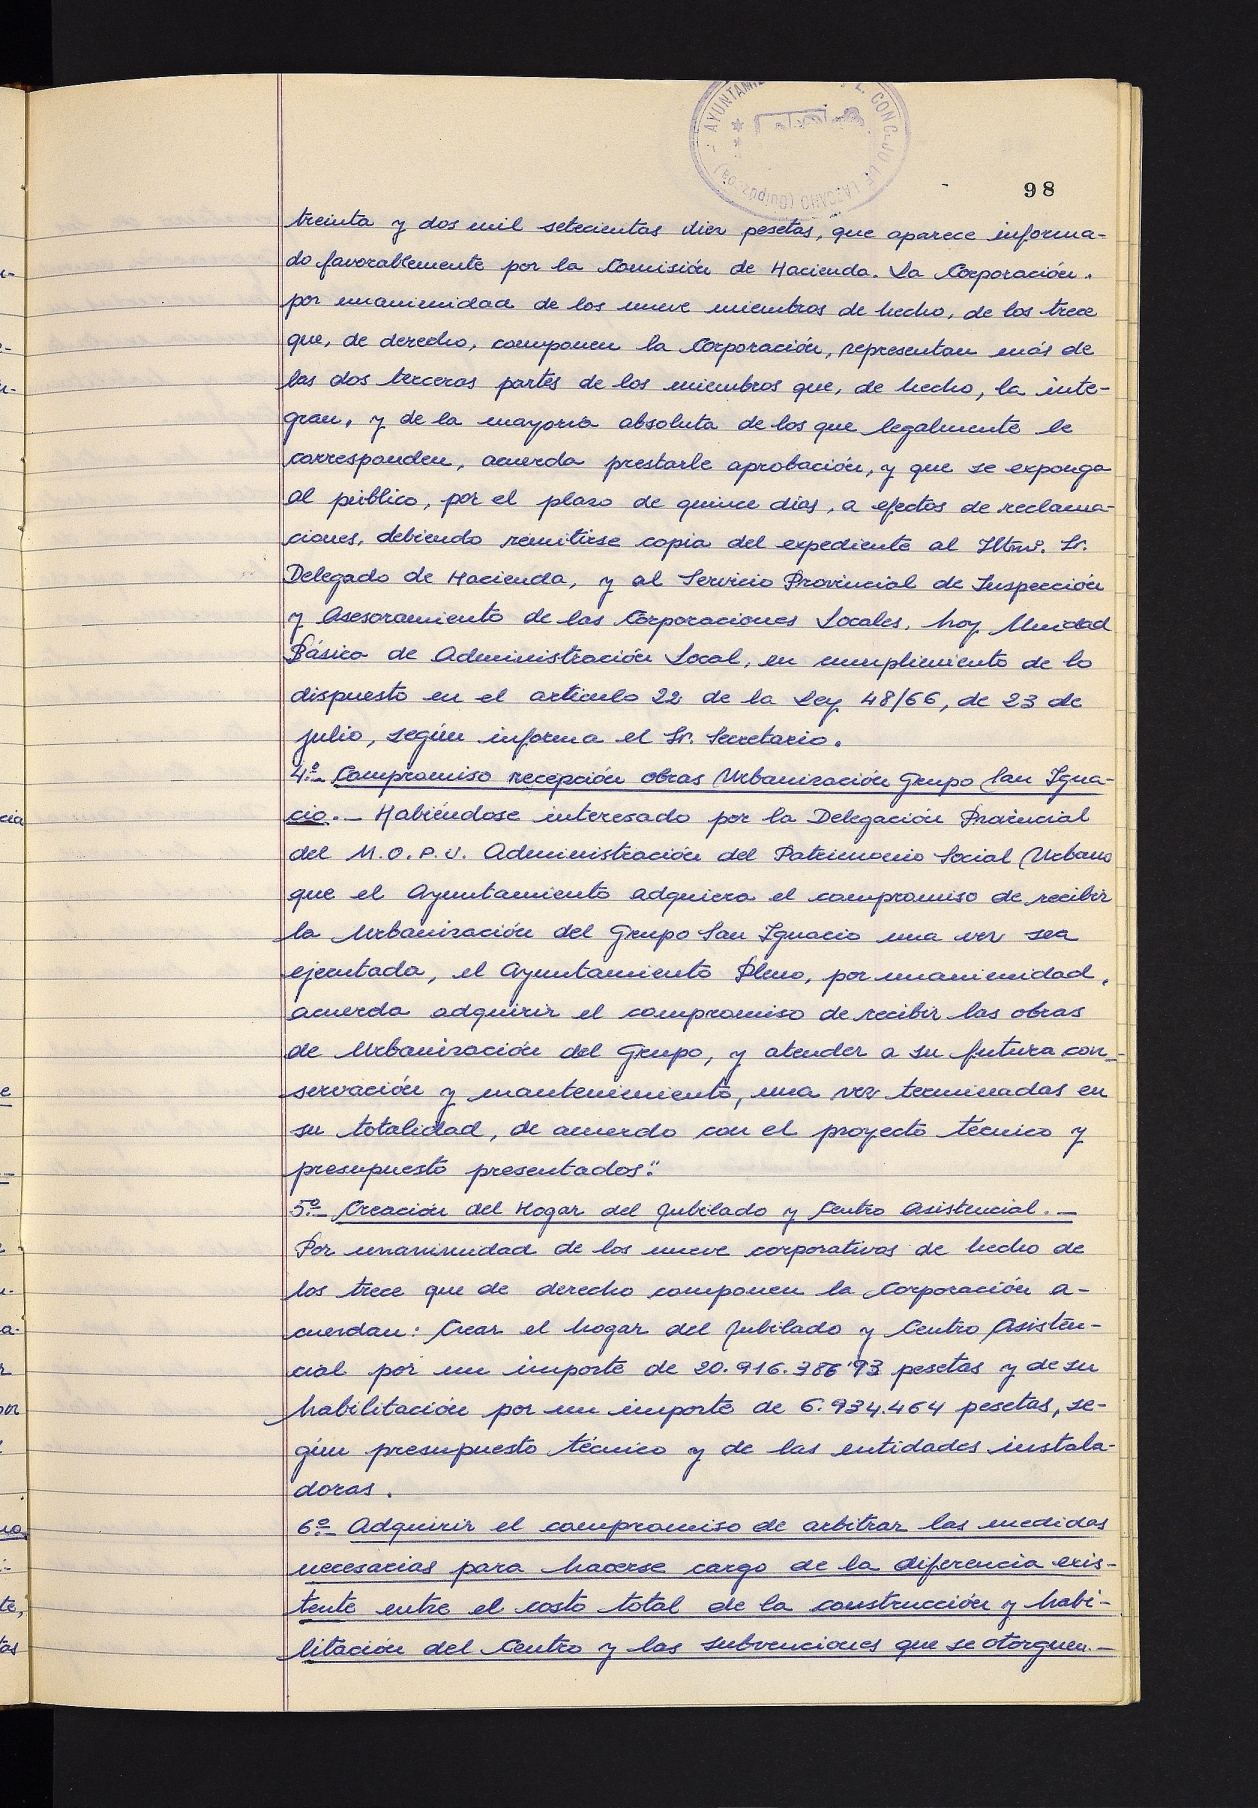 98
treinta y dos mil setecientas diez pesetas, que aparece informa-
do favorablemente por la Comisión de Hacienda. La Corporación.
por unanimidad de los nueve miembros de hecho, de los trece
que, de derecho, componen la Corporación, representan más de
las dos terceras partes de los miembros que, de hecho, la inte-
gran, y de la mayoría absoluta de los que legalmente le
corresponden, acuerda prestarle aprobación, y que se exponga
al público, por el plazo de quince días, a efectos de reclama-
ciones, debiendo remitirse copia del expediente al Iltmo. Sr.
Delegado de Hacienda, y al Servicio Provincial de Inspección
y Asesoramiento de las Corporaciones Locales, hoy Unidad
Básica de Administración Local, en cumplimiento de lo
dispuesto en el artículo 22 de la Ley 48/66, de 23 de
julio, según informa el Sr. Secretario.
4º.- Compromiso recepción obras Urbanización Grupo San Igna-
cio.- Habiéndose interesado por la Delegación Provincial
del M.O.P.U. Administración del Patrimonio Social Urbano
que el Ayuntamiento adquiera el compromiso de recibir
la Urbanización del Grupo San Ignacio una vez sea
ejecutada, el Ayuntamiento Pleno, por unanimidad,
acuerda adquirir el compromiso de recibir las obras
de Urbanización del Grupo, y atender a su futura con-
servación y mantenimiento, una vez terminadas en
su totalidad, de acuerdo con el proyecto técnico y
presupuesto presentados."
5º.- Creación del Hogar del Jubilado y Centro Asistencial.-
Por unanimidad de los nueve corporativos de hecho de
los trece que de derecho componen la Corporación a-
cuerdan: Crear el hogar del Jubilado y Centro Asisten-
cial por un importe de 20.916.386'93 pesetas y de su
habilitación por un importe de 6.934.464 pesetas, se-
gún presupuesto técnico y de las entidades instala-
doras.
6º.- Adquirir el compromiso de arbitrar las medidas
necesarias para hacerse cargo de la diferencia exis-
tente entre el costo total de la construcción y habi-
litación del Centro y las subvenciones que se otorguen.-